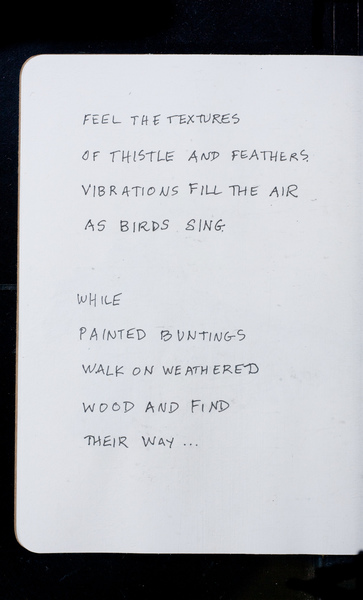 FEEL THE TEXTURES
OF THISTLE AND FEATHERS
VIBRATIONS FILL THE AIR
AS BIRDS SING
WHILE
PAINTED BUNTINGS
WALK ON WEATHERED
WOOD AND FIND
THEIR WAY...